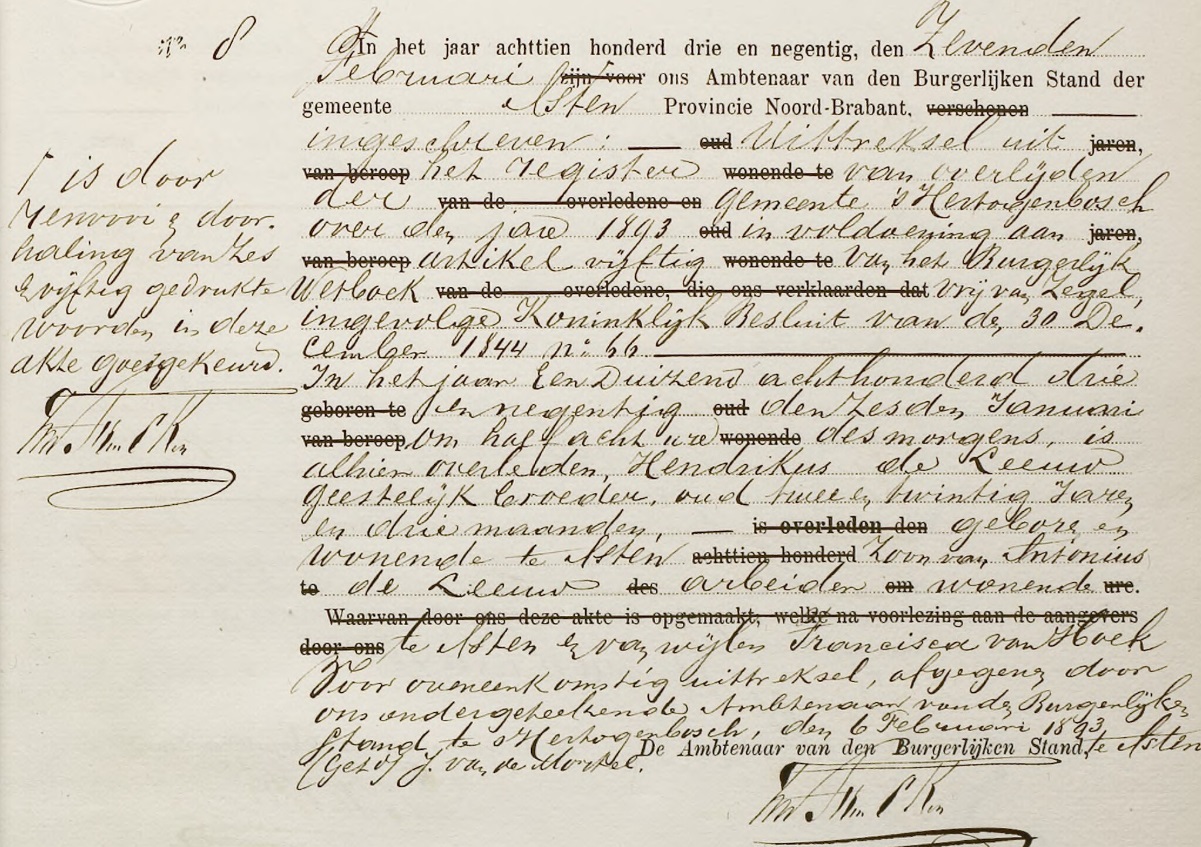 No 8
In het jaar achttien honderd drie en negentig, den Zevenden
Februari zijn voor ons Ambtenaar van den Burgerlijken Stand der
gemeente Asten Provincie Noord-Brabant, verschenen
ingeschreven: oud Uittreksel uit jaren,
van beroep het register wonende te van overlijden
der van de overledene en gemeente 's Hertogenbosch
over den jare 1893 oud in voldoening aan jaren,
van beroep artikel vijftig wonende te van het Burgerlijk
Wetboek van de overledene, die ons verklaarden dat vrij van Zegel,
ingevolge Koninklijk Besluit van den 30 De-
cember 1844 no 66
In het jaar Een Duizend achthonderd drie
geboren te en negentig oud den Zesden Januari
van beroep, om half acht ure wonende des morgens, is
alhier overleden, Hendrikus de Leeuw
geestelijk broeder, oud twee en twintig Jaren
en drie maanden, is overleden den geboren en
wonende te Asten achttien honderd Zoon van Antonius
te de Leeuw des arbeider om wonende ure.
Waarvan door ons deze akte is opgemaakt, welke na voorlezing aan de aangevers
door ons te Asten en van wijlen Francisca van Hoek
Voor overeenkomstig uittreksel, afgegeven door
ons ondergeteekende Ambtenaar van den Burgerlijken
Stand te s Hertogenbosch, den 6 Februari 1893
(Get.) J. van de Mortel. De Ambtenaar van den Burgerlijken Stand, te Asten
is door
renvooi & door-
haling van Zes
& vijftig gedrukte
woorden in deze
akte goedgekeurd.